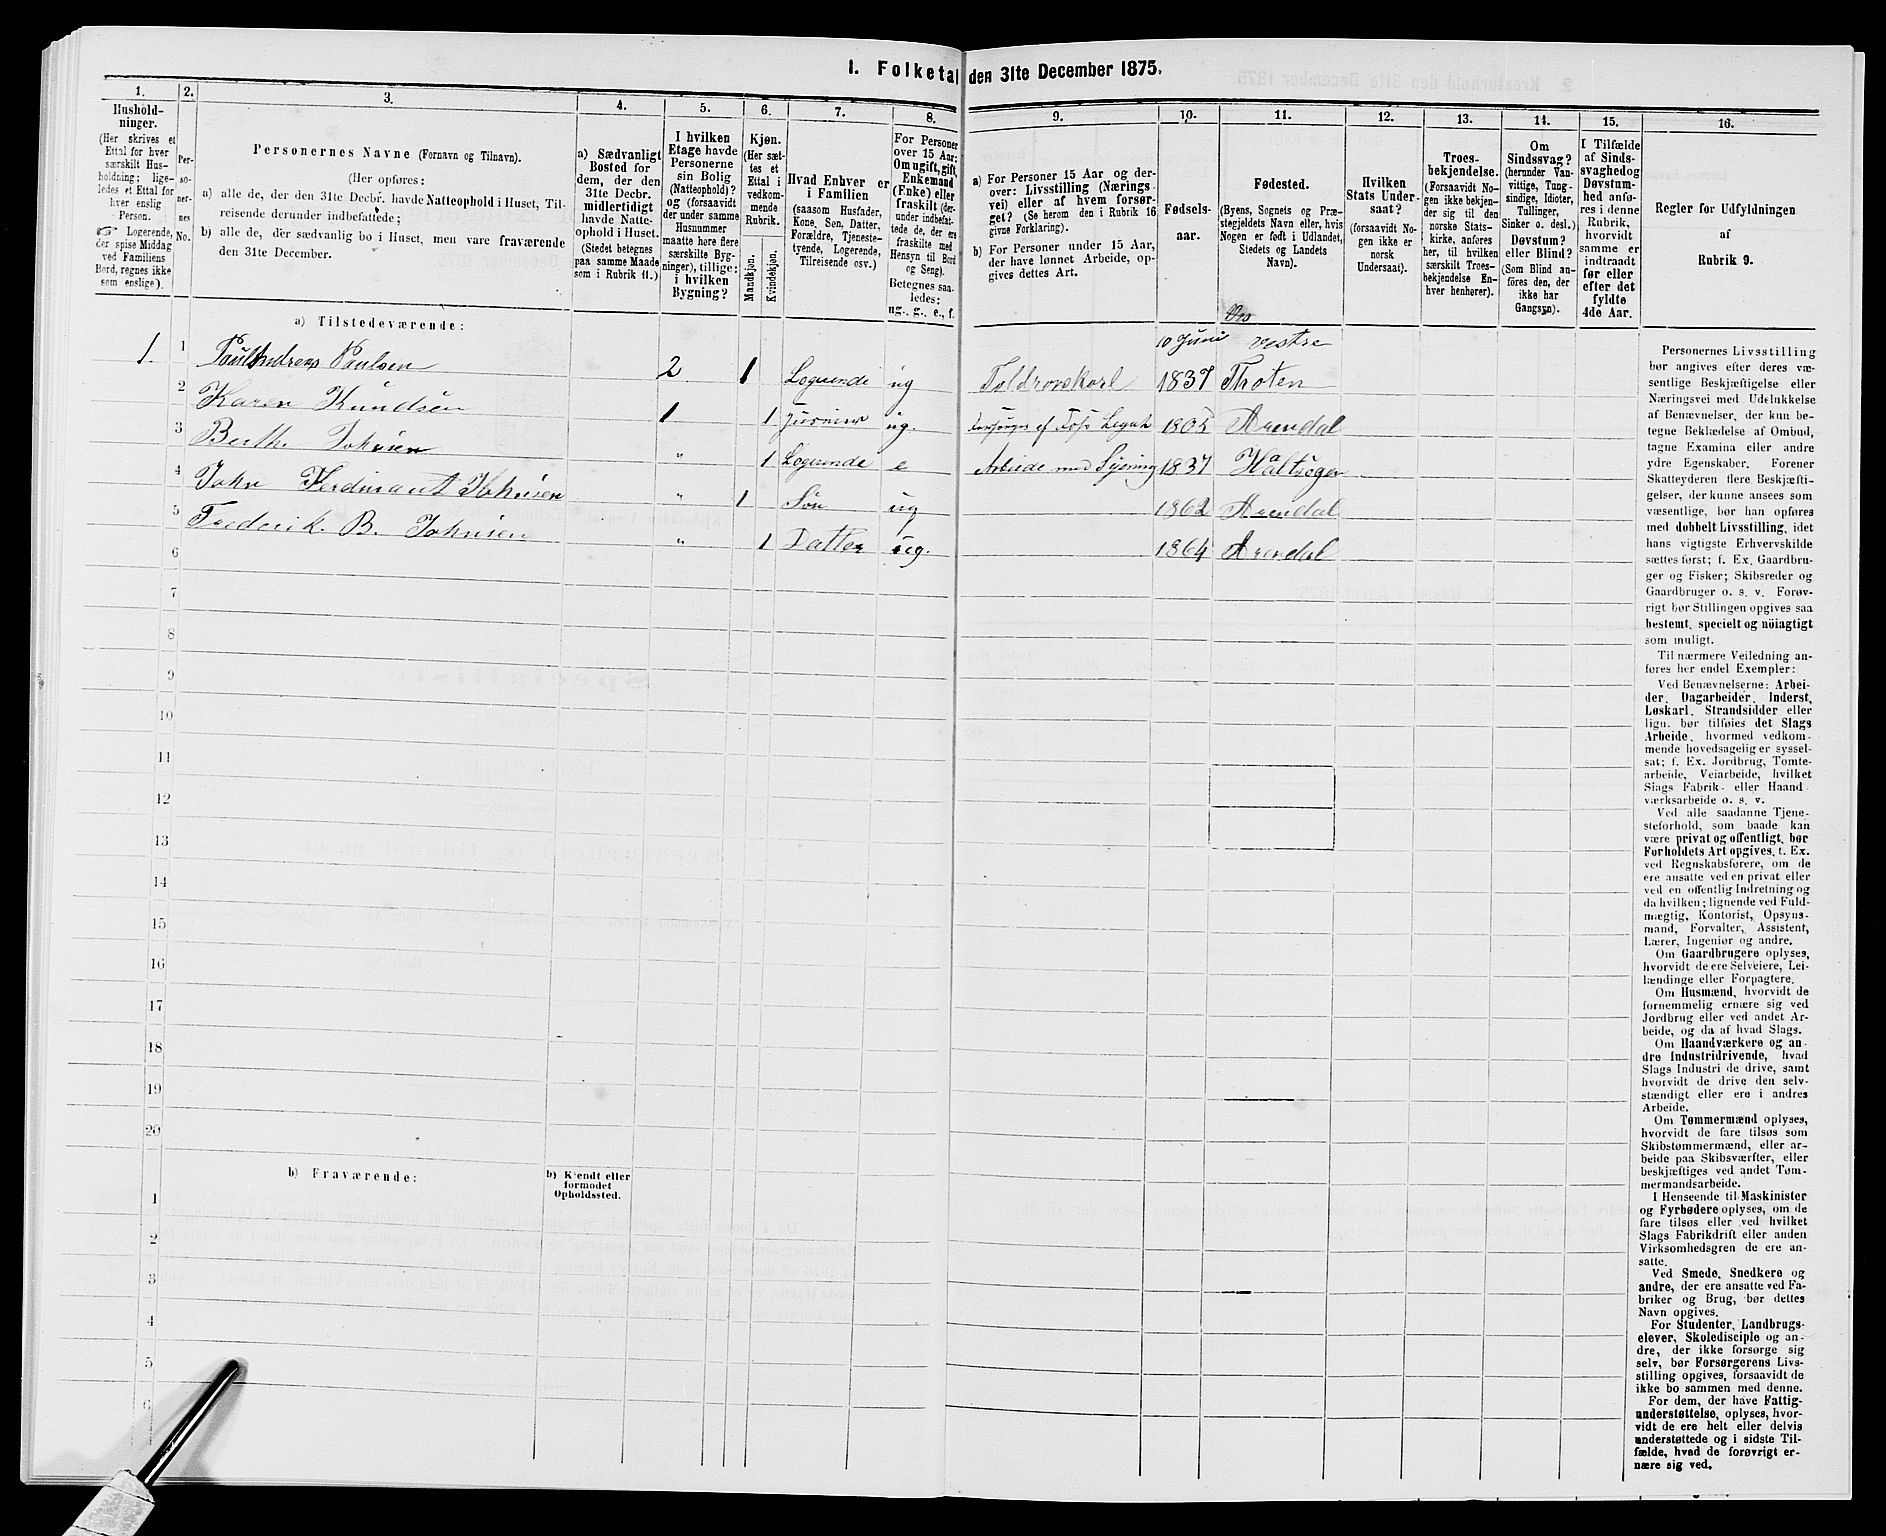 I. Folketal den 31te December 1875.
1.
Hushold-
ninger.
(Her skrives et
Ettal for hver
særskilt Hus-
holdning; lige-
ledes et Ettal for
hver enslig
Person.
☞ Logerende,
der spise Middag
ved Familiens
Bord, regnes ikke
som enslige).
2.
Per-
so-
ner-
nes
No.
3.
Personernes Navne (Fornavn og Tilnavn).
(Her opføres:
a) alle de, der den 31te Decbr. havde Natteophold i Huset, Til-
reisende derunder indbefattede;
b) alle de, der sædvanlig bo i Huset, men vare fraværende
den 31te December.
4.
a) Sædvanligt
Bosted for
dem, der den
31te Decbr.
midlertidigt
havde Natte-
ophold i Huset.
(Stedet betegnes
paa samme Maade
som i Rubrik 11.)
5.
I hvilken
Etage havde
Personerne
sin Bolig
(Natteophold)?
og (forsaavidt
der under samme
Husnummer
maatte høre flere
særskilte Byg-
ninger), tillige:
i hvilken
Bygning?
6.
Kjøn.
(Her sæt-
tes et
Ettal i
vedkom-
mende
Rubrik.
Mandkjøn.
Kvindekjøn.
7.
Hvad Enhver er
i Familien
(saasom Husfader,
Kone, Søn, Datter,
Forældre, Tjeneste-
tyende, Logerende,
Tilreisende osv.)
8.
For Personer
over 15 Aar:
Om ugift, gift,
Enkemand
(Enke) eller
fraskilt (der-
under indbefat-
tede de, der ere
fraskilte med
Hensyn til Bord
og Seng).
Betegnes saa-
ledes:
ug., g., e., f.
9.
a) For Personer 15 Aar og der-
over: Livsstilling (Nærings-
vei) eller af hvem forsør-
get? (Se herom den i Rubrik 16
givne Forklaring).
b) For Personer under 15 Aar,
der have lønnet Arbeide, op-
gives dettes Art.
10.
Fødsels-
aar.
11.
Fødested.
(Byens, Sognets og Præ-
stegjeldets Navn eller, hvis
Nogen er født i Udlandet,
Stedets og Landets
Navn).
12.
Hvilken
Stats Under-
saat?
(forsaavidt No-
gen ikke er
norsk
Undersaat).
13.
Troes-
bekjendelse.
(Forsaavidt No-
gen ikke bekjen-
der sig til den
norske Stats-
kirke, anføres
her, til hvilken
særskilt Troes-
bekjendelse En-
hver henhører).
14.
Om
Sindssvag?
(herunder Van-
vittige, Tung-
sindige, Idioter,
Tullinger,
Sinker o. desl.)
Døvstum?
eller Blind?
(Som Blind an-
føres den, der
ikke har
Gangsyn).
15.
I Tilfælde
af Sinds-
svaghed og
Døvstum-
hed anfø-
res i denne
Rubrik,
hvorvidt
samme er
indtraadt
før eller
efter det
fyldte
4de Aar.
16.
Regler for Udfyldningen
af
Rubrik 9.
a) Tilstedeværende:
10 Juni vestre
1. 1 Paul Andreas Paulsen 2 1 Logerende ug Toldrorskarl 1837 Thoten
2 Karen Knudsen 1 1 ug. 1805 Arendal
3 Berthe Johnsen " 1 Logerende e Arbeide med Syening 1837 Håltsogen
4 John Ferdinant Johnsen " 1 Søn ug 1862 Arendal
5 Frederik. B. Johnsen " 1 Datter ug. 1864 Arendal
6
7
8
9
10
11
12
13
14
15
16
17
18
19
20
b) Fraværende:
b) Kjendt eller
formodet
Opholdssted.
1
2
3
4
5
6
Personernes Livsstilling
bør angives efter deres væ-
sentlige Beskjæftigelse eller
Næringsvei med Udelukkelse
af Benævnelser, der kun be-
tegne Beklædelse af Ombud,
tagne Examina eller andre
ydre Egenskaber. Forener
Skatteyderen flere Beskjæfti-
gelser, der kunne ansees som
væsentlige, bør han opføres
med dobbelt Livsstilling, idet
hans vigtigste Erhvervskilde
sættes først; f. Ex. Gaardbru-
ger og Fisker; Skibsreder og
Gaardbruger o. s. v. Forøv-
rigt bør Stillingen opgives saa
bestemt, specielt og nöiagtigt
som muligt.
Til nærmere Veiledning an-
føres her endel Exempler:
Ved Benævnelserne: Arbei-
der, Dagarbeider, Inderst,
Løskarl, Strandsidder eller
lign. bør tilføies det Slags
Arbeide, hvormed vedkom-
mende hovedsagelig er syssel-
sat; f. Ex. Jordbrug, Tomte-
arbeide, Veiarbeide, hvilket
Slags Fabrik- eller Haand
værksarbeide o. s. v.
Ved alle saadanne Tjene-
steforhold, som baade kan
være privat og offentligt, bør
Forholdets Art opgives, t. Ex.
ved Regnskabsførere, om de
ere ansatte ved en privat eller
ved en offentlig Indretning og
da hvilken; lignende ved Fuld-
mægtig, Kontorist, Opsyns-
mand, Forvalter, Assistent,
Lærer, Ingeniør og andre.
Om Gaardbrugere oplyses,
hvorvidt de ere Selveiere, Lei-
lændinge eller Forpagtere.
Om Husmænd, hvorvidt de
fornemmelig ernære sig ved
Jordbrug eller ved andet Ar-
beide, og da af hvad Slags.
Om Haandværkere og an
dre Industridrivende, hvad
Slags Industri de drive, samt
hvorvidt de drive den selv-
stændigt eller ere i andres
Arbeide.
Om Tømmermænd oplyses,
hvorvidt de fare tilsøs som
Skibstømmermænd, eller ar-
beide paa Skibsværfter, eller
beskjæftiges ved andet Tøm-
mermandsarbeide.
I Henseende til Maskinister
og Fyrbødere oplyses, om de
fare tilsøs eller ved hvilket
Slags Fabrikdrift eller anden
Virksomhedsgren de ere an-
satte.
Ved Smede, Snedkere og
andre, der ere ansatte ved Fa-
briker og Brug, bør dettes
Navn opgives.
For Studenter, Landbrugs-
elever, Skoledisciple og an-
dre, der ikke forsørge sig
selv, bør Forsørgerens Livs-
stilling opgives, forsaavidt de
ikke bo sammen med denne.
For dem, der have Fattig-
understøttelse, oplyses, hvor-
vidt de ere helt eller delvis
understøttede og i sidste Til-
fælde, hvad de forøvrigt er-
nære sig ved.